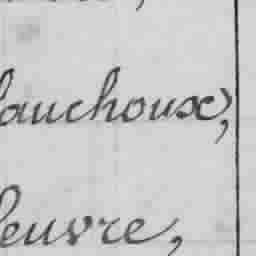 lauchoux,
leuvre,